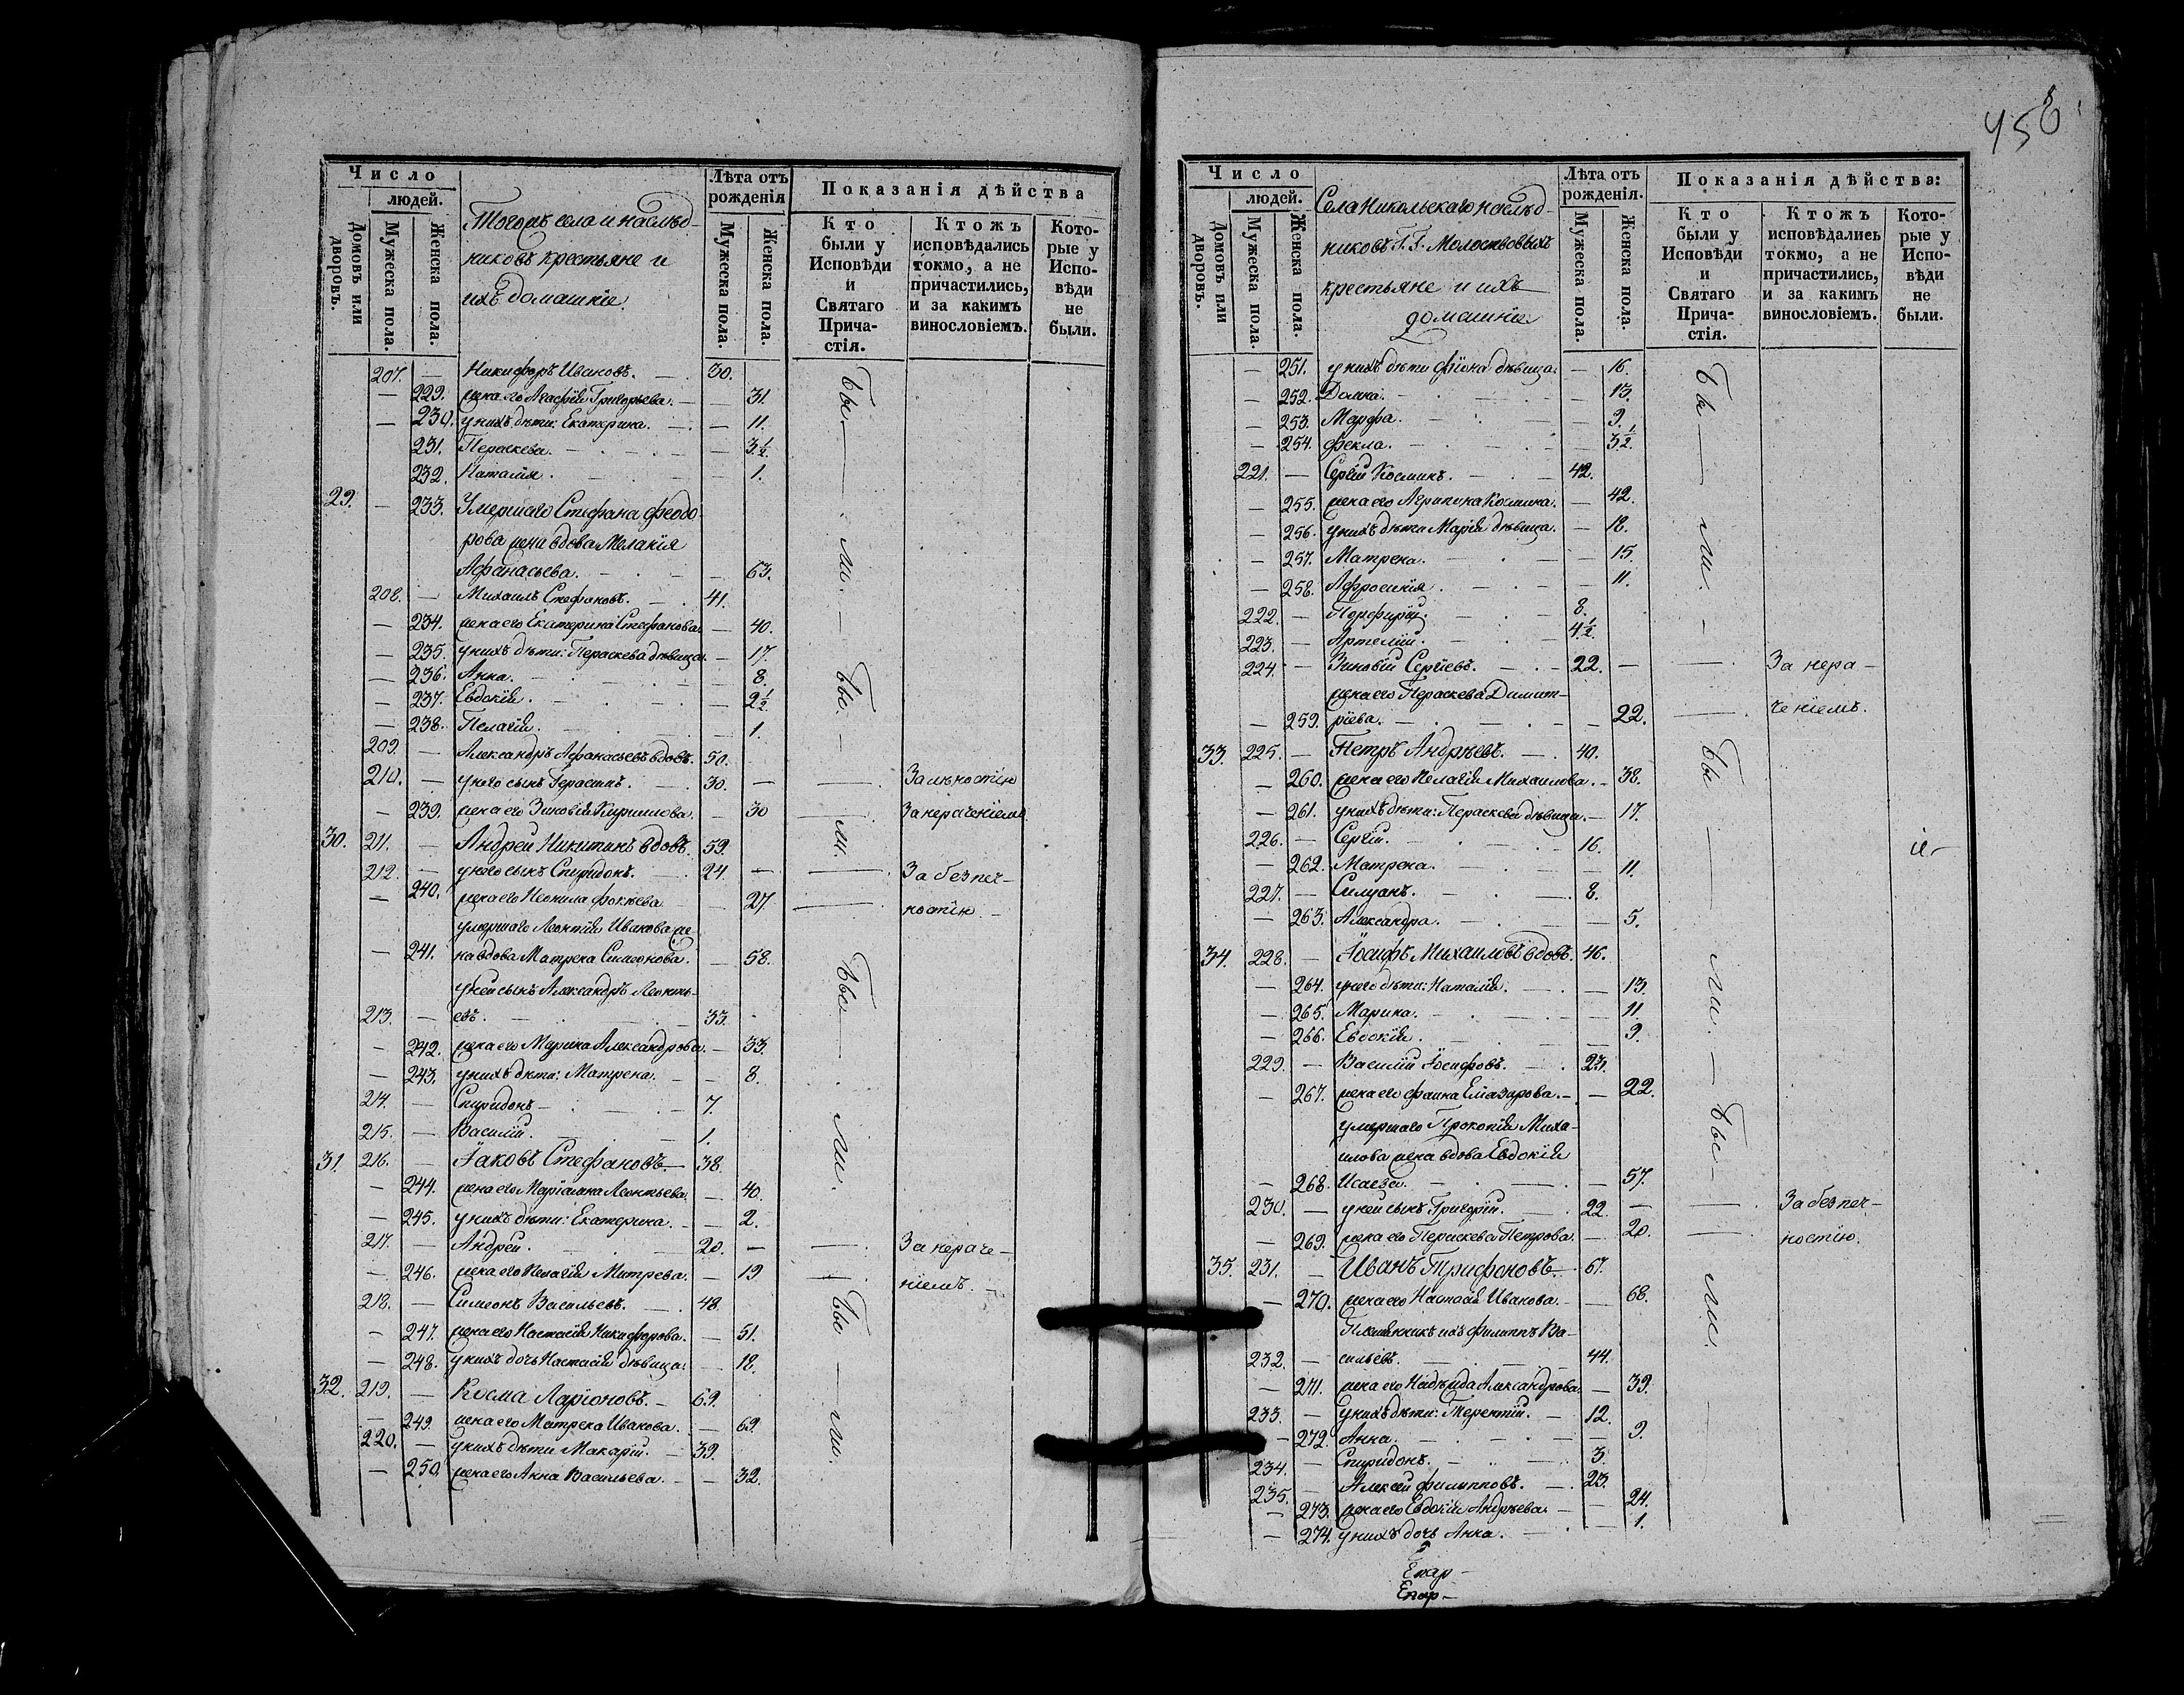 458
Число
людей.
Домовъ или дворовъ.
Мужеска пола.
Женска пола.
Тогожъ села и наслѣд-
никовъ крестьяне и
ихъ домашніе.
Лѣта отъ рожденія
Мужеска пола.
Женска пола.
Показанія дѣйства
Кто были у Исповѣди и Святаго Прича- стія.
Ктожъ исповѣдались токмо, а не причастились, и за какимъ винословіемъ.
Кото- рые у Испо- вѣди не были.
207. — Никифоръ Ивановъ. — 30.
— 229. жена его Агафія Григорьева. — 31.
— 230. у нихъ дѣти: Екатерина. — 11.
231. Параскева. — 3½
232. Наталія. — 1.
29. — 233. Умершаго Стефана Феодо-
рова жена вдова Меланія
Афанасьева. — 63.
208. — Михаилъ Стефановъ. — 41.
— 234. жена его Екатерина Стефанова. — 40.
— 235. у нихъ дѣти: Параскева дѣвица. — 17.
— 236. Анна. — 8.
— 237. Евдокія. — 2½
— 238. Пелагія. — 1.
209. — Александръ Афанасьевъ вдовъ. 50.
210. — у него сынъ Герасимъ. — 30. — За лѣностію
— 239. жена его Зиновія Кириллова. — 30 За нерачениемъ
30. 211. — Андрей Никитинъ вдовъ. 59.
212. — у него сынъ Спиридонъ. — 24. — За безпеч-
— 240. жена его Неонила Фокѣева — 27. ностію. —
умершаго Леонтія Иванова же-
— 241. на вдова Матрена Симеонова. — 58.
у ней сынъ Александръ Леонть-
213. — евъ. — 33.
— 242. жена его Марина Александрова. — 33.
— 243. у нихъ дѣти: Матрена. — 8.
214. — Спиридонъ — 7.
215. — Василій. — 1.
31. 216. — Іаковъ Стефановъ. — 38.
— 244. жена его Маріамна Леонтьева. — 40.
— 245. у нихъ дѣти: Екатерина. — 2.
217. — Андрей. — 20. — За нераче-
— 246. жена его Пелагія Митрева. — 19 ніемъ. —
218. — Симеонъ Васильевъ. — 48.
— 247. жена его Настасія Никифорова. — 51.
— 248. у нихъ дочь Настасія дѣвица. — 18.
32. 219. — Косма Ларіоновъ. — 69.
— 249. жена его Матрена Иванова. — 69.
220. — у нихъ дѣти Макарій. — 39.
— 250. жена его Анна Васильева. — 32.
Бы — ли. — Бы. — ли. Бы — ли. Бы — ли.
Число
людей.
Домовъ или дворовъ.
Мужеска пола.
Женска пола.
Села Никольскаго наслѣд-
никовъ Г. Г. Молоствовыхъ
крестьяне и ихъ
домашніе
Лѣта отъ рожденія.
Мужеска пола.
Женска пола.
Показанія дѣйства:
Кто были у Исповѣди и Святаго Прича- стія.
Ктожъ исповѣдались токмо, а не причастились, и за какимъ винословіемъ.
Кото- рые у Испо- вѣди не были.
— 251. у нихъ дѣти Фіона дѣвица. — 16.
— 252. Домна. — 13.
— 253. Марфа. — 9.
— 254. Фекла. — 3½.
221. — Сергій Косминъ. — 42.
— 255. жена его Агрипина Космина. — 42.
— 256. у нихъ дѣти Марія дѣвица. — 18.
— 257. Матрена. — 15.
— 258. Афросинія. — 11.
222. — Порфирій. — 8.
223. — Артемій. — 4½.
224. — Зиновій Сергіевъ. — 22. — За нера-
жена его Параскева Димит-
— 259. ріева. — 22. ченіемъ.
33. 225. — Петръ Андрѣевъ. — 40.
— 260. жена его Пелагія Михаилова. — 38.
— 261. у нихъ дѣти: Параскева дѣвица. — 17.
226. — Сергій. — 16.
— 262. Матрена. — 11.
227. — Силуанъ. — 8.
— 263. Александра. — 5.
34. 228. — Іосифъ Михаиловъ вдовъ. 46.
— 264. у него дѣти: Наталія. — 13.
— 265. Марина. — 11.
— 266. Евдокія. — 9.
229. — Василій Іосифовъ. — 23.
— 267. жена его Фаина Елиазарова. — 22.
умершаго Прокопія Миха-
илова жена вдова Евдокія
— 268. Исаева. — 57.
230. — у ней сынъ Григорій. — 22. — За безпеч-
— 269. жена его Параскева Петрова. — 20. ностію.
35. 231. — Иванъ Трифоновъ. — 67.
— 270. жена его Настасія Иванова. — 68.
Племянникъ ихъ Филиппъ Ва-
232. — сильевъ. — 44.
— 271. жена его Надежда Александрова. — 39.
233. — у нихъ дѣти: Терентій. — 12.
— 272. Анна. — 9.
234. — Спиридонъ. — 3.
235. — Алексій Филипповъ. — 23.
— 273. жена его Евдокія Андрѣева. — 24.
— 274. у нихъ дочь Анна. — 1.
Бы — ли. — Бы — ли. — Бы — ли.
Епар-
Епар-